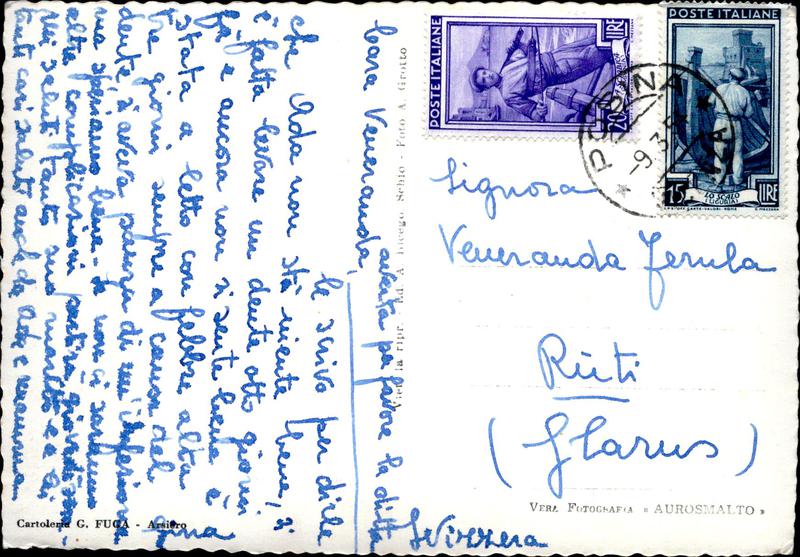 Cara Veneranda,
le scrivo per dirle
che Ada non stà niente bene, si
è fatta levare un dente otto giorni
fa e ancora non si sente bene è
stata a letto con febbre alta
tre giorni sempre a causa del
dente; s'aveva paura di un'infezione
ma speriamo bene. Se non ci saranno
altre complicazioni partirà giovedì
saluti tanto suo marito e a lei
tanti cari saluti anche da Ada e mamma
Gina
avverta per favore la ditta
Viet. la ripr. Ed. A. Docego. Schio - Foto A. Grotto
Cartoleria G. FUGA - Arsiero
POSTE ITALIANE
20 LIRE
POSTE ITALIANE
15 LIRE
LO SCALO
(LIGURIA)
9.3
Signora
Veneranda Ferula
Rüti
(Glarus)
Svizzera
VERA FOTOGRAFIA « AUROSMALTO »